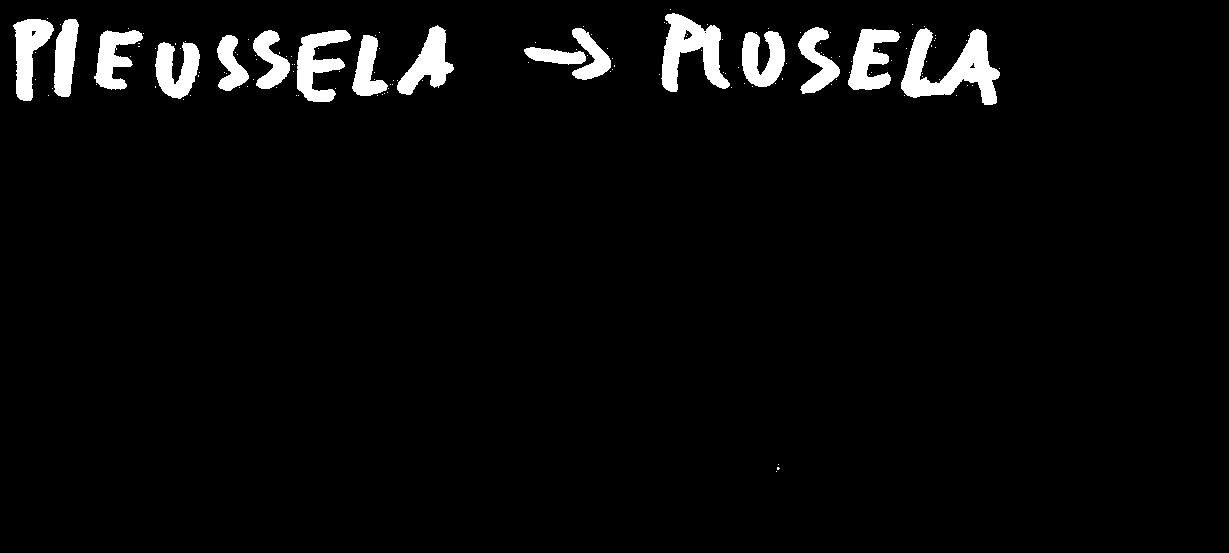 PIEUSSELA → PIUSELA